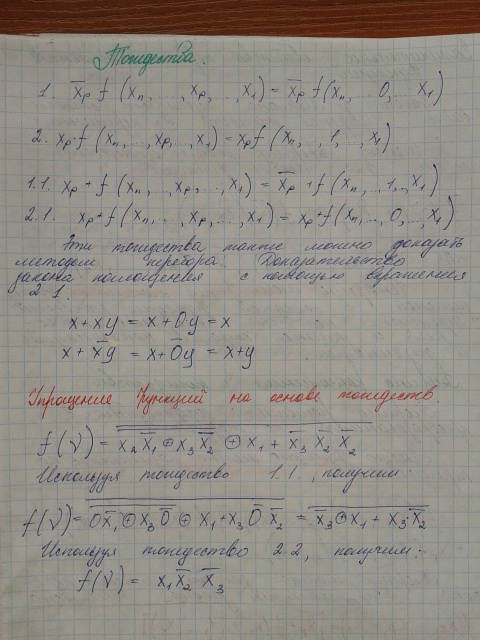 Тождества.
1. x̅ₚ f (xₙ, ..., xₚ, ..., x₁) = x̅ₚ f(xₙ, .. 0, .. x₁)
2. xₚ·f (xₙ, ..., xₚ, ..., x₁) = xₚ f (xₙ, .., 1, .., x₁)
1.1. xₚ + f (xₙ, ..., xₚ, ..., x₁) = x̅ₚ + f (xₙ, .., 1, .., x₁)
2.1. xₚ + f (xₙ, ..., xₚ, ..., x₁) = xₚ + f (xₙ, .., 0, ..., x₁)
Эти тождества также можно доказать
методом перебора. Доказательство
закона поглощения с помощью выражения
2.1.
x + xy = x + 0·y = x
x + x̅y = x + 0̅y = x + y
Упрощение функций на основе тождеств.
f(v) = x₂ x̅₁ ⊕ x₃ x̅₂ ⊕ x₁ + x̅₃ x̅₂ x̅₂
Используя тождество 1.1., получим
f(v) = 0x̅₁ ⊕ x₃ 0̅ ⊕ x₁ + x₃ 0̅ x̅₂ = x₃ ⊕ x₁ + x₃·x̅₂
Используя тождество 2.2, получим:
f(v) = x₁ x̅₂ x̅₃